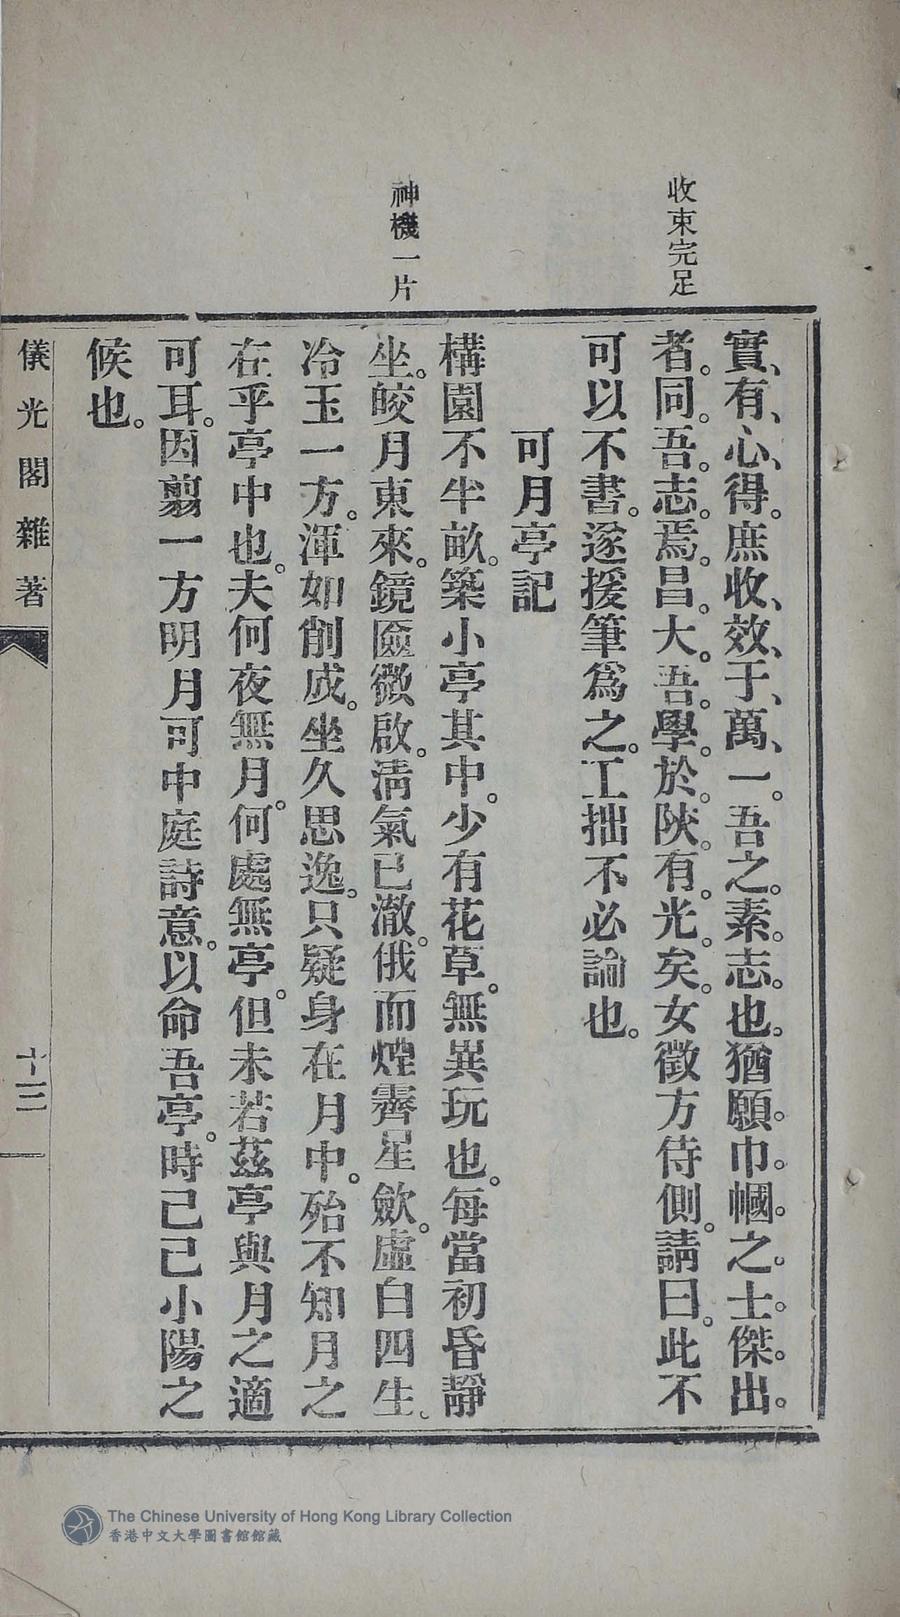 收束完足
神機一片
實、有、心、得。庶收、效、于、萬、一。吾之。素。志。也。猶願。巾。幗。之。士。傑。出。
者。同。吾。志。焉。昌。大。吾。學。於。陝。有。光。矣。女徵方侍側。請曰。此不
可以不書。遂援筆爲之。工拙不必論也。
可月亭記
構園不半畝。築小亭其中。少有花草。無異玩也。每當初昏靜
坐。皎月東來。鏡匳微啟。清氣已澈。俄而煙霽星歛。虛白四生。
冷玉一方。渾如削成。坐久思逸。只疑身在月中。殆不知月之
在乎亭中也。夫何夜無月。何處無亭。但未若茲亭與月之適
可耳。因翦一方明月可中庭詩意。以命吾亭。時己巳小陽之
候也。
儀光閣雜著
十三
The Chinese University of Hong Kong Library Collection
香港中文大學圖書館館藏